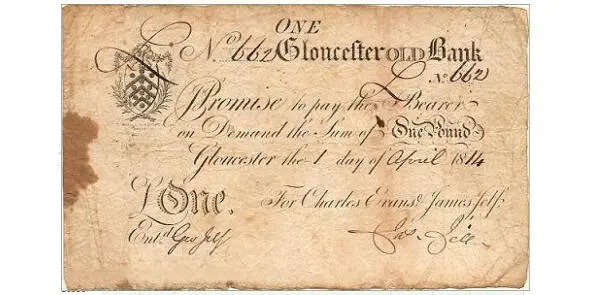 ONE
No 662 Gloucester OLD Bank
No 662
I Promise to pay the Bearer
on Demand the Sum of One Pound
Gloucester the 1 day of April 1814
£One. For Charles Evans & James Jelf
Entd Geo Jelf Jas. Jelf